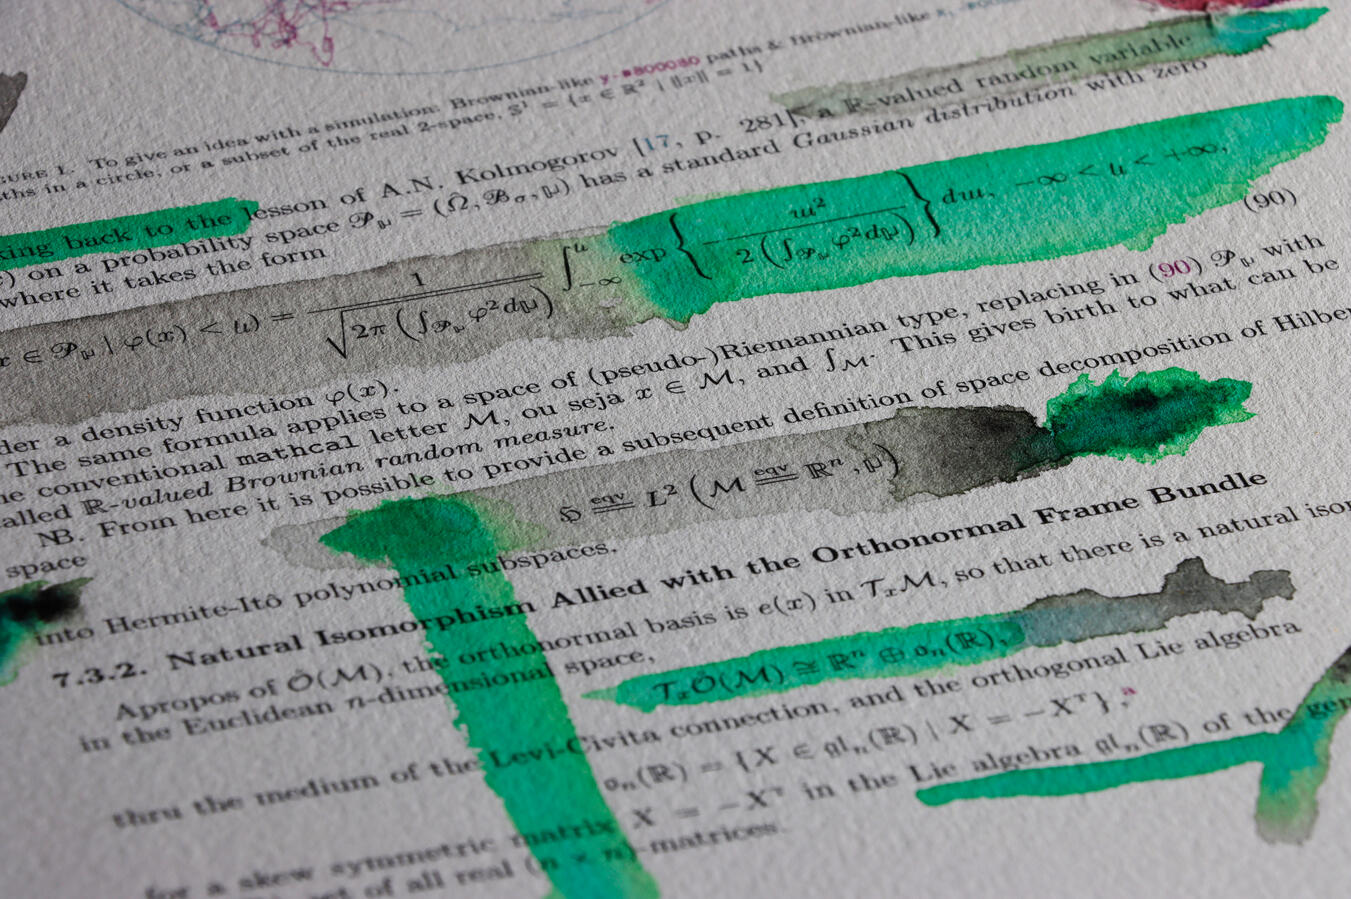 URE 1. To give an idea with a simulation: Brownian-like y-#800080 paths & Brownian-like
ths in a circle, or a subset of the real 2-space, 𝕊¹ = {x ∈ ℝ² | ‖x‖ = 1}
king back to the lesson of A.N. Kolmogorov [17, p. 281], a ℝ-valued random variable
) on a probability space 𝒫 = (Ω̂, ℬσ, ) has a standard Gaussian distribution with zero
where it takes the form
x ∈ 𝒫 | φ(x) < u) = 1 / √(2π (∫𝒫 φ²d)) ∫_{-∞}^{u} exp { ш² / 2 (∫𝒫 φ²d) } dш, −∞ < u < +∞,
(90)
der a density function φ(x).
The same formula applies to a space of (pseudo-)Riemannian type, replacing in (90) 𝒫 with
he conventional mathcal letter ℳ, ou seja x ∈ ℳ, and ∫ℳ. This gives birth to what can be
alled ℝ-valued Brownian random measure.
NB. From here it is possible to provide a subsequent definition of space decomposition of Hilber
space
ℌ eqv= L² (ℳ eqv= ℝⁿ, )
into Hermite-Itô polynomial subspaces.
7.3.2. Natural Isomorphism Allied with the Orthonormal Frame Bundle
Apropos of Ö(ℳ), the orthonormal basis is e(x) in 𝒯ₓℳ, so that there is a natural isom
in the Euclidean n-dimensional space,
𝒯ₓÖ(ℳ) ≅ ℝⁿ ⊕ 𝔬ₙ(ℝ),
thru the medium of the Levi-Civita connection, and the orthogonal Lie algebra
𝔬ₙ(ℝ) = {X ∈ 𝔤𝔩ₙ(ℝ) | X = −Xᵀ},ᵃ
for a skew symmetric matrix X = −Xᵀ in the Lie algebra 𝔤𝔩ₙ(ℝ) of the gen
set of all real (n × n)-matrices.